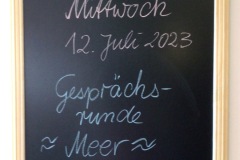 Mittwoch
12. Juli 2023
Gesprächs-
runde
≈ Meer ≈